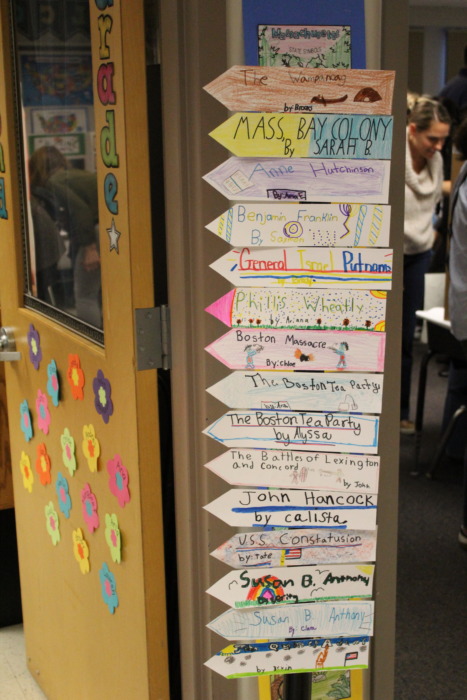 Massachusetts
The Wampanoag
by: Brooks
MASS. BAY COLONY
By SARAH B
Anne Hutchinson
Benjamin Franklin
By
General Israel Putnam
Phillis Wheatly
by: Ariana
Boston Massacre
By: Chloe
The Boston Tea Party
by: Ava
The Boston Tea Party
by Alyssa
The Battles of Lexington
and Concord
by John
John Hancock
by calista
U.S.S. Constatusion
by: Tate
Susan B. Anthony
By Verity
Susan B. Anthony
By: Clara
rade